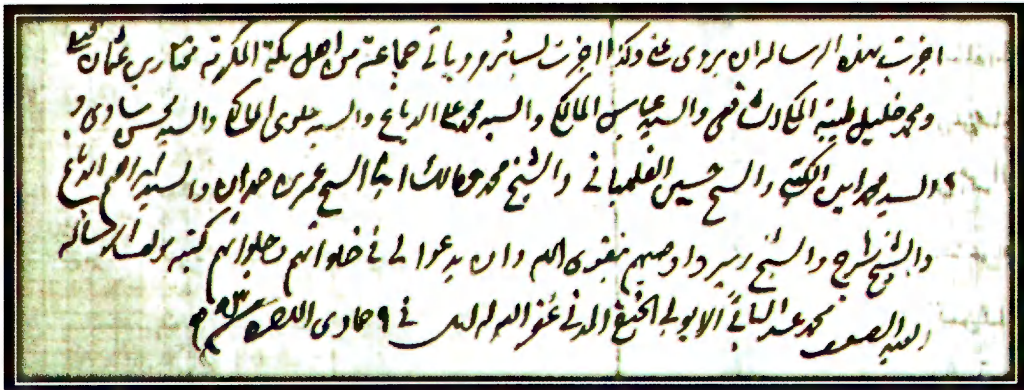 اجزت بهذه الرسالة ان يروى عني وكذا اجزت لسائر مروياتي جماعة من اهل مكة المكرمة مختار بن عثمان
ومحمد خليل طيبة المكي الشافعي والسيد عباس المالكي والسيد محمد علي الدباغ والسيد علوي المالكي والسيد محسن مساوى و
السيد محمد امين الكتبي والشيخ حسين الفلمباني والشيخ محمد ومالك ابنا الشيخ عمر حمدان والسيد ابراهيم الدباغ
والشيخ والشيخ زبير واوصيهم بتقوى الله وان يدعوا لي في خلواتهم وجلواتهم كتبه مؤلف الرسالة
العبد الضعيف محمد عبد الباقي الايوبي المدني غفر الله له في ٩ جمادى